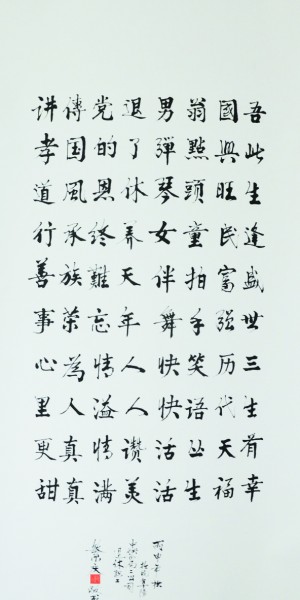 吾此生逢盛世三生有幸
國興旺民富强历代天福
翁點頭童拍手笑语丛生
男彈琴女伴舞快快活活
退了休养天年人人讚美
党的恩终難忘情溢情满
傳国風承族荣為人真真
讲孝道行善事心里更甜
丙申年秋